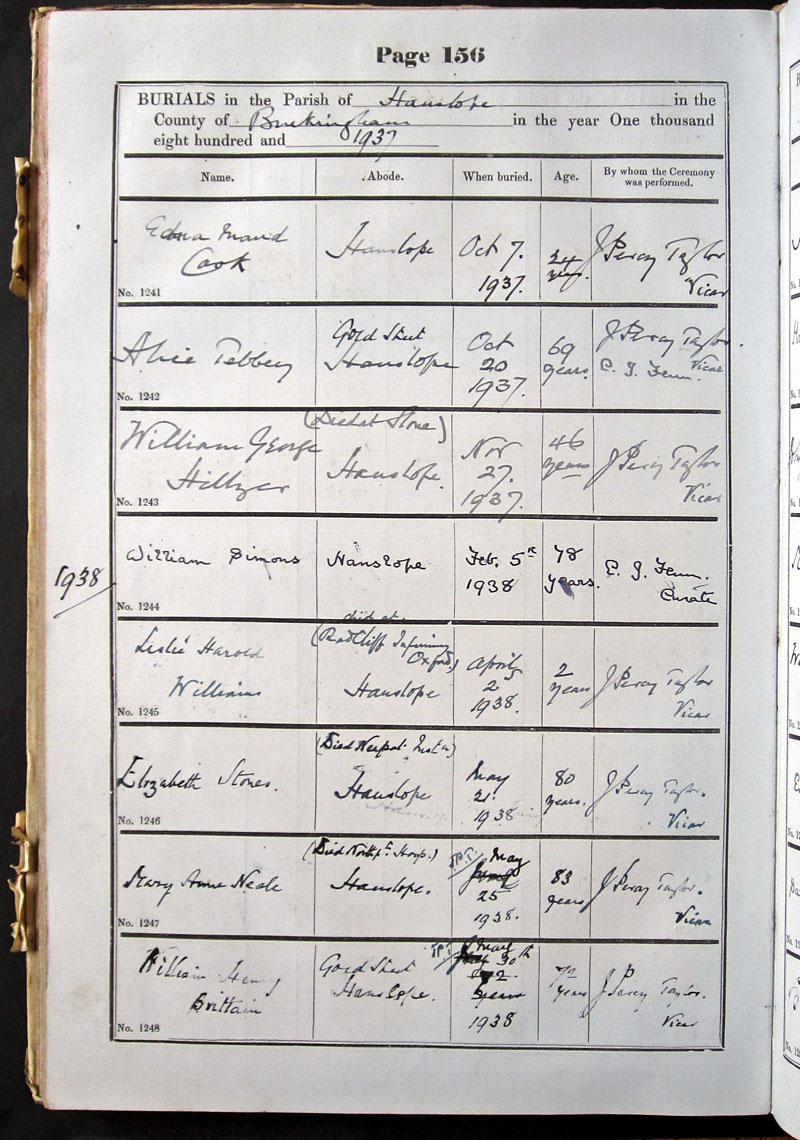 Page 156
BURIALS in the Parish of Hanslope in the
County of Buckingham in the year One thousand
eight hundred and 1937
Name. Abode. When buried. Age. By whom the Ceremony was performed.
Edna Maud Hanslope Oct 7. 24 J Percy Taylor
Cook 1937. yrs. Vicar
No. 1241
Gold Street Oct 69 J Percy Taylor.
Alice Tebbey Hanslope 20 years. Vicar
1937. C. J. Fenn.
No. 1242
(Died at Stone)
William George Hanslope. Nov 46 J Percy Taylor
Hillyer 27. years Vicar
1937.
No. 1243
1938
William Simons Hanslope Feb. 5th 78 C. J. Fenn.
1938 years. Curate
No. 1244
died at
(Radcliff Infirmary
Oxford.)
Leslie Harold April 2 J Percy Taylor
Williams Hanslope 2 years Vicar
1938.
No. 1245
(Died Newport Instn)
Elizabeth Stones. Hanslope May 80 J Percy Taylor.
21. years. Vicar
1938
No. 1246
(Died Northptn Hosp.) J.P.T. May
Mary Anne Neale Hanslope. 25 83 J Percy Taylor.
1938. years Vicar
No. 1247
J.P.T. May
William Henry Gold Street 30th 72 J Percy Taylor.
Brittain Hanslope. years Vicar
1938
No. 1248